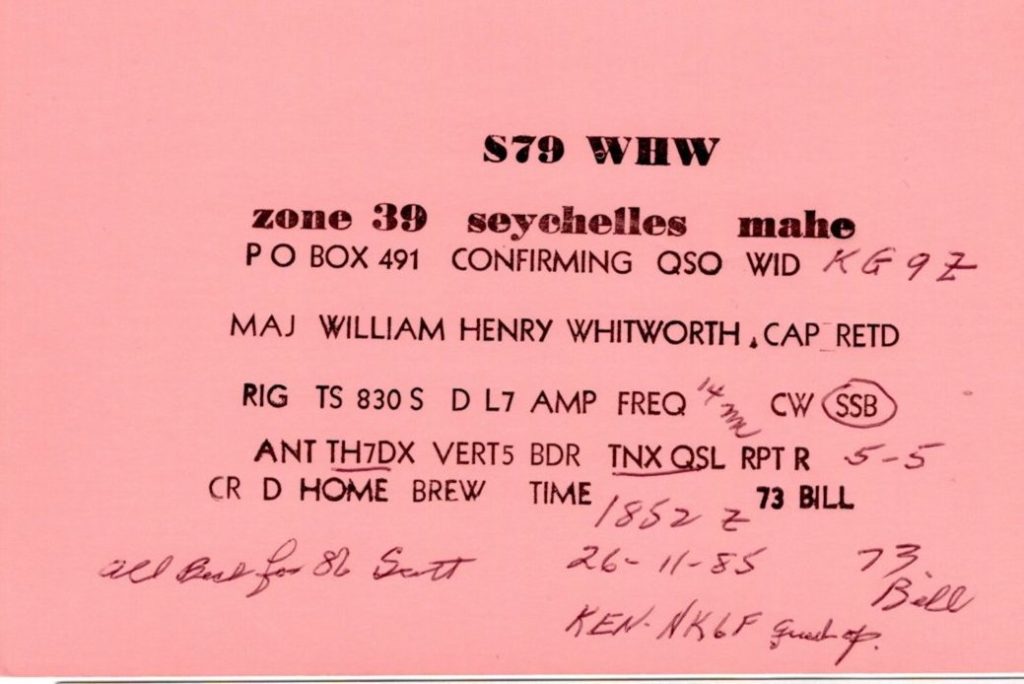 S79 WHW
zone 39 seychelles mahe
P O BOX 491 CONFIRMING QSO WID KG9Z
MAJ WILLIAM HENRY WHITWORTH, CAP RETD
RIG TS 830 S D L7 AMP FREQ 14 CW SSB
ANT TH7DX VERT5 BDR TNX QSL RPT R 5-5
CR D HOME BREW TIME 1852 Z 73 BILL
All Best for 86 Scott 26-11-85 73
Bill
KEN-NK6F guest op.